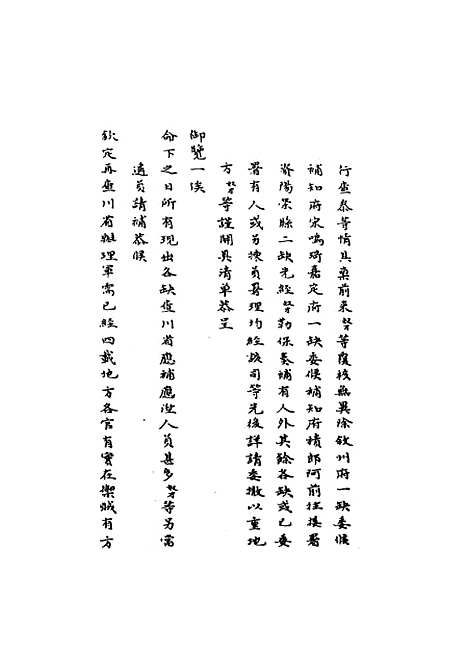 行查叅等情具稟前來奴才等覆核無異除敘州府一缺委候
補知府宋鳴琦嘉定府一缺委候補知府積郎阿前往接署
資陽榮縣二缺先經奴才勒保奏補有人外其餘各缺或已委
署有人或另揀員署理均經該司等先後詳請委撤以重地
方奴才等謹開具清單恭呈
御覽一俟
命下之日所有現出各缺查川省應補應陞人員甚多奴才等另當
遴員請補恭候
欽定再查川省辦理軍需已經四載地方各官有實在禦賊有方